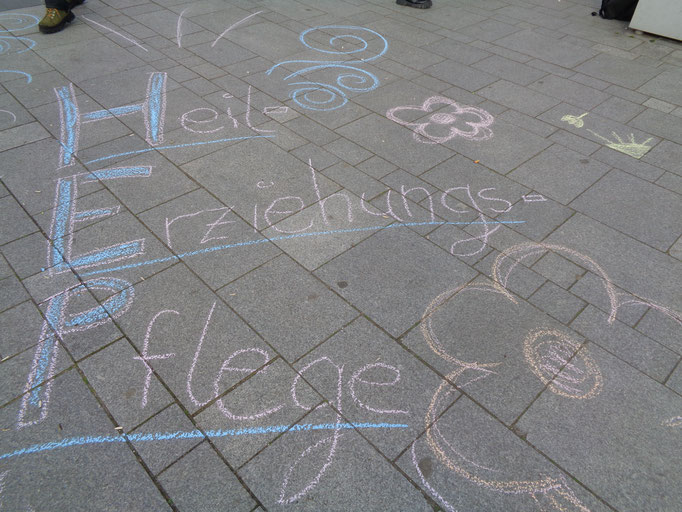 Heil-
Erziehungs-
Pflege